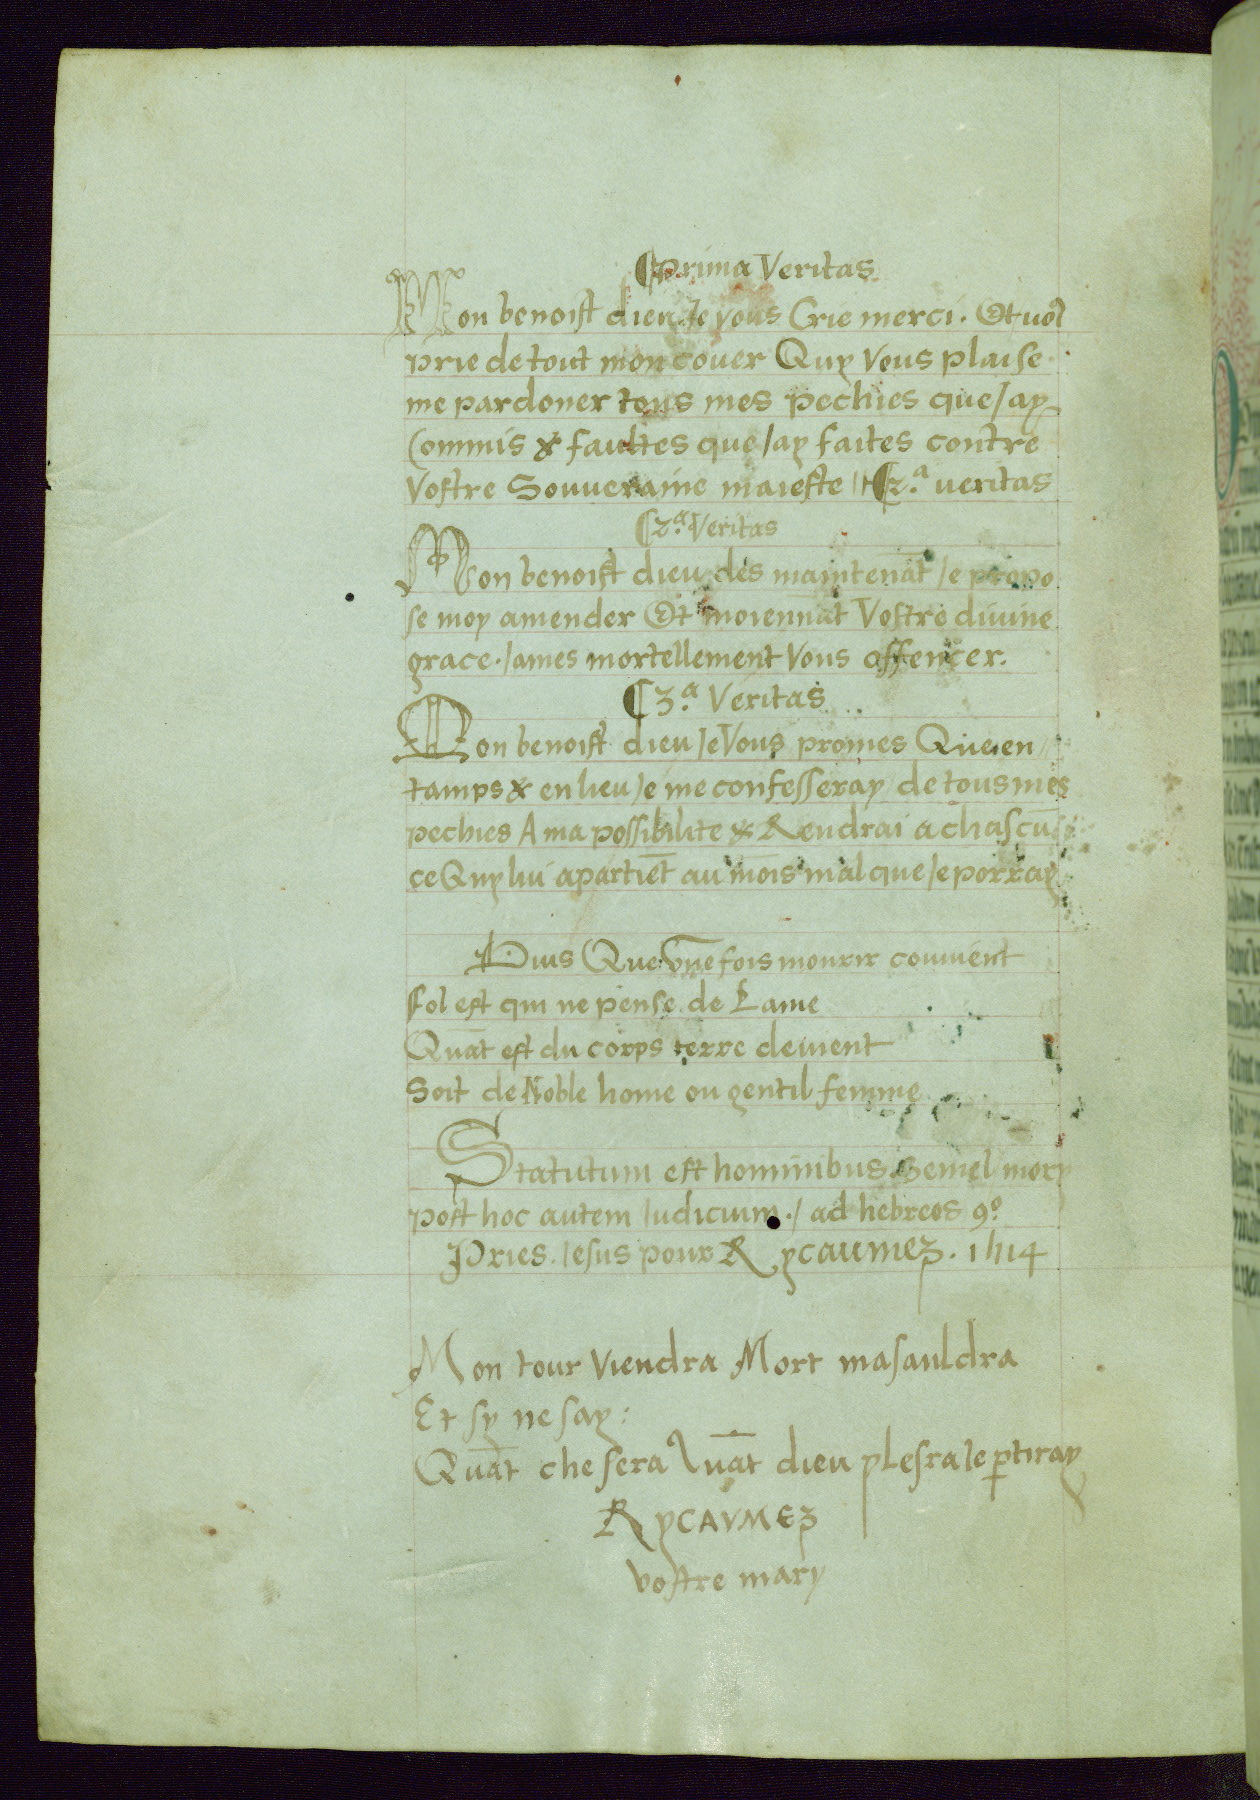 ¶ Prima Veritas
Mon benoist dieu Je vous Crie merci. Et uo9
prie de tout mon couer Quy Vous plaise
me pardoner tous mes pechies que Jay
Commis & faultes que Jay faites contre
Vostre Souueraine maieste ¶ 2.a ueritas
¶ 2.a Veritas
Mon benoist dieu des maintenāt Je propo
se moy amender Et moiennāt Vostre diuine
grace. James mortellement Vous offencer.
¶ 3.a Veritas
Mon benoist dieu Je Vous promes Que en
tamps & en lieu Je me confesseray de tous mes
pechies A ma possibilite & Rendrai a chascū
ce Quy lui apartiēt au mois mal que Je porray
Puis Que vne fois mourir conuient
Fol est qui ne pense de Lame
Quāt est du corps terre deuient
Soit de Noble home ou gentil femme
Statutum est hominibus Semel mory
post hoc autem Judicium ./ ad hebreos 9º
Pries Jesus pour Rycaumez. 1514
Mon tour Viendra Mort masauldra
Et sy ne say :
Quāt che sera Quāt dieu plesra Je ptiray
RyCAVMEz
vostre mary